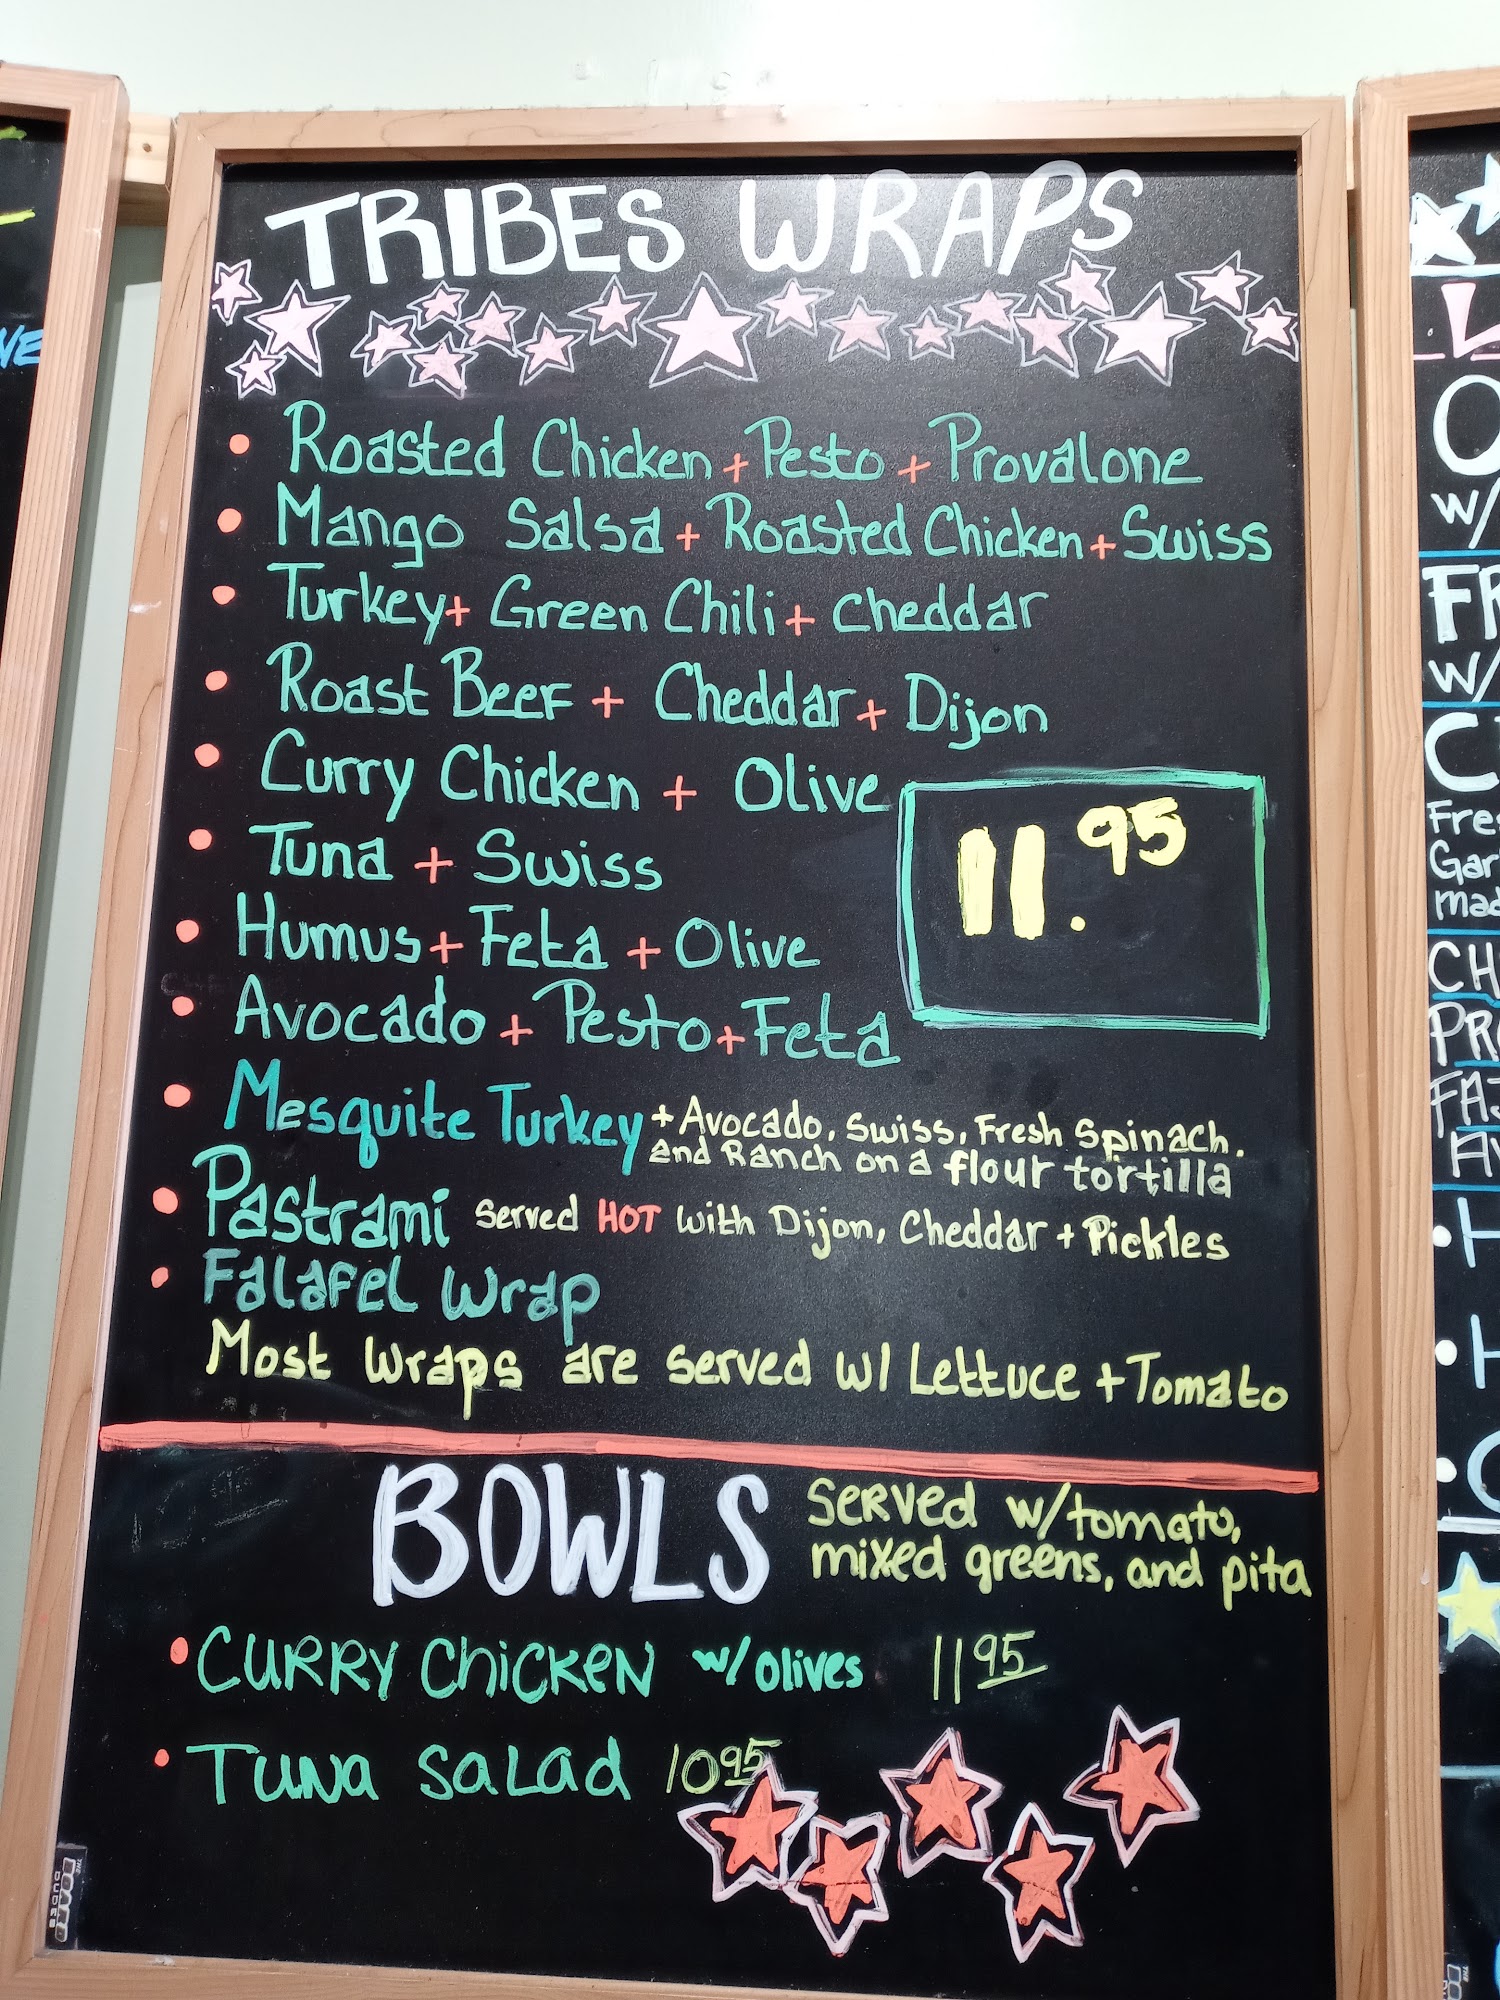 TRIBES WRAPS
• Roasted Chicken + Pesto + Provalone
• Mango Salsa + Roasted Chicken + Swiss
• Turkey + Green Chili + Cheddar
• Roast Beef + Cheddar + Dijon
• Curry Chicken + Olive
• Tuna + Swiss
11.95
• Humus + Feta + Olive
• Avocado + Pesto + Feta
• Mesquite Turkey + Avocado, Swiss, Fresh Spinach,
and Ranch on a flour tortilla
• Pastrami Served HOT with Dijon, Cheddar + Pickles
• Falafel Wrap
Most Wraps are served w/ Lettuce + Tomato
BOWLS
Served w/tomato,
mixed greens, and pita
• CURRY CHICKEN w/olives 11 95
• TUNA SALAD 10 95